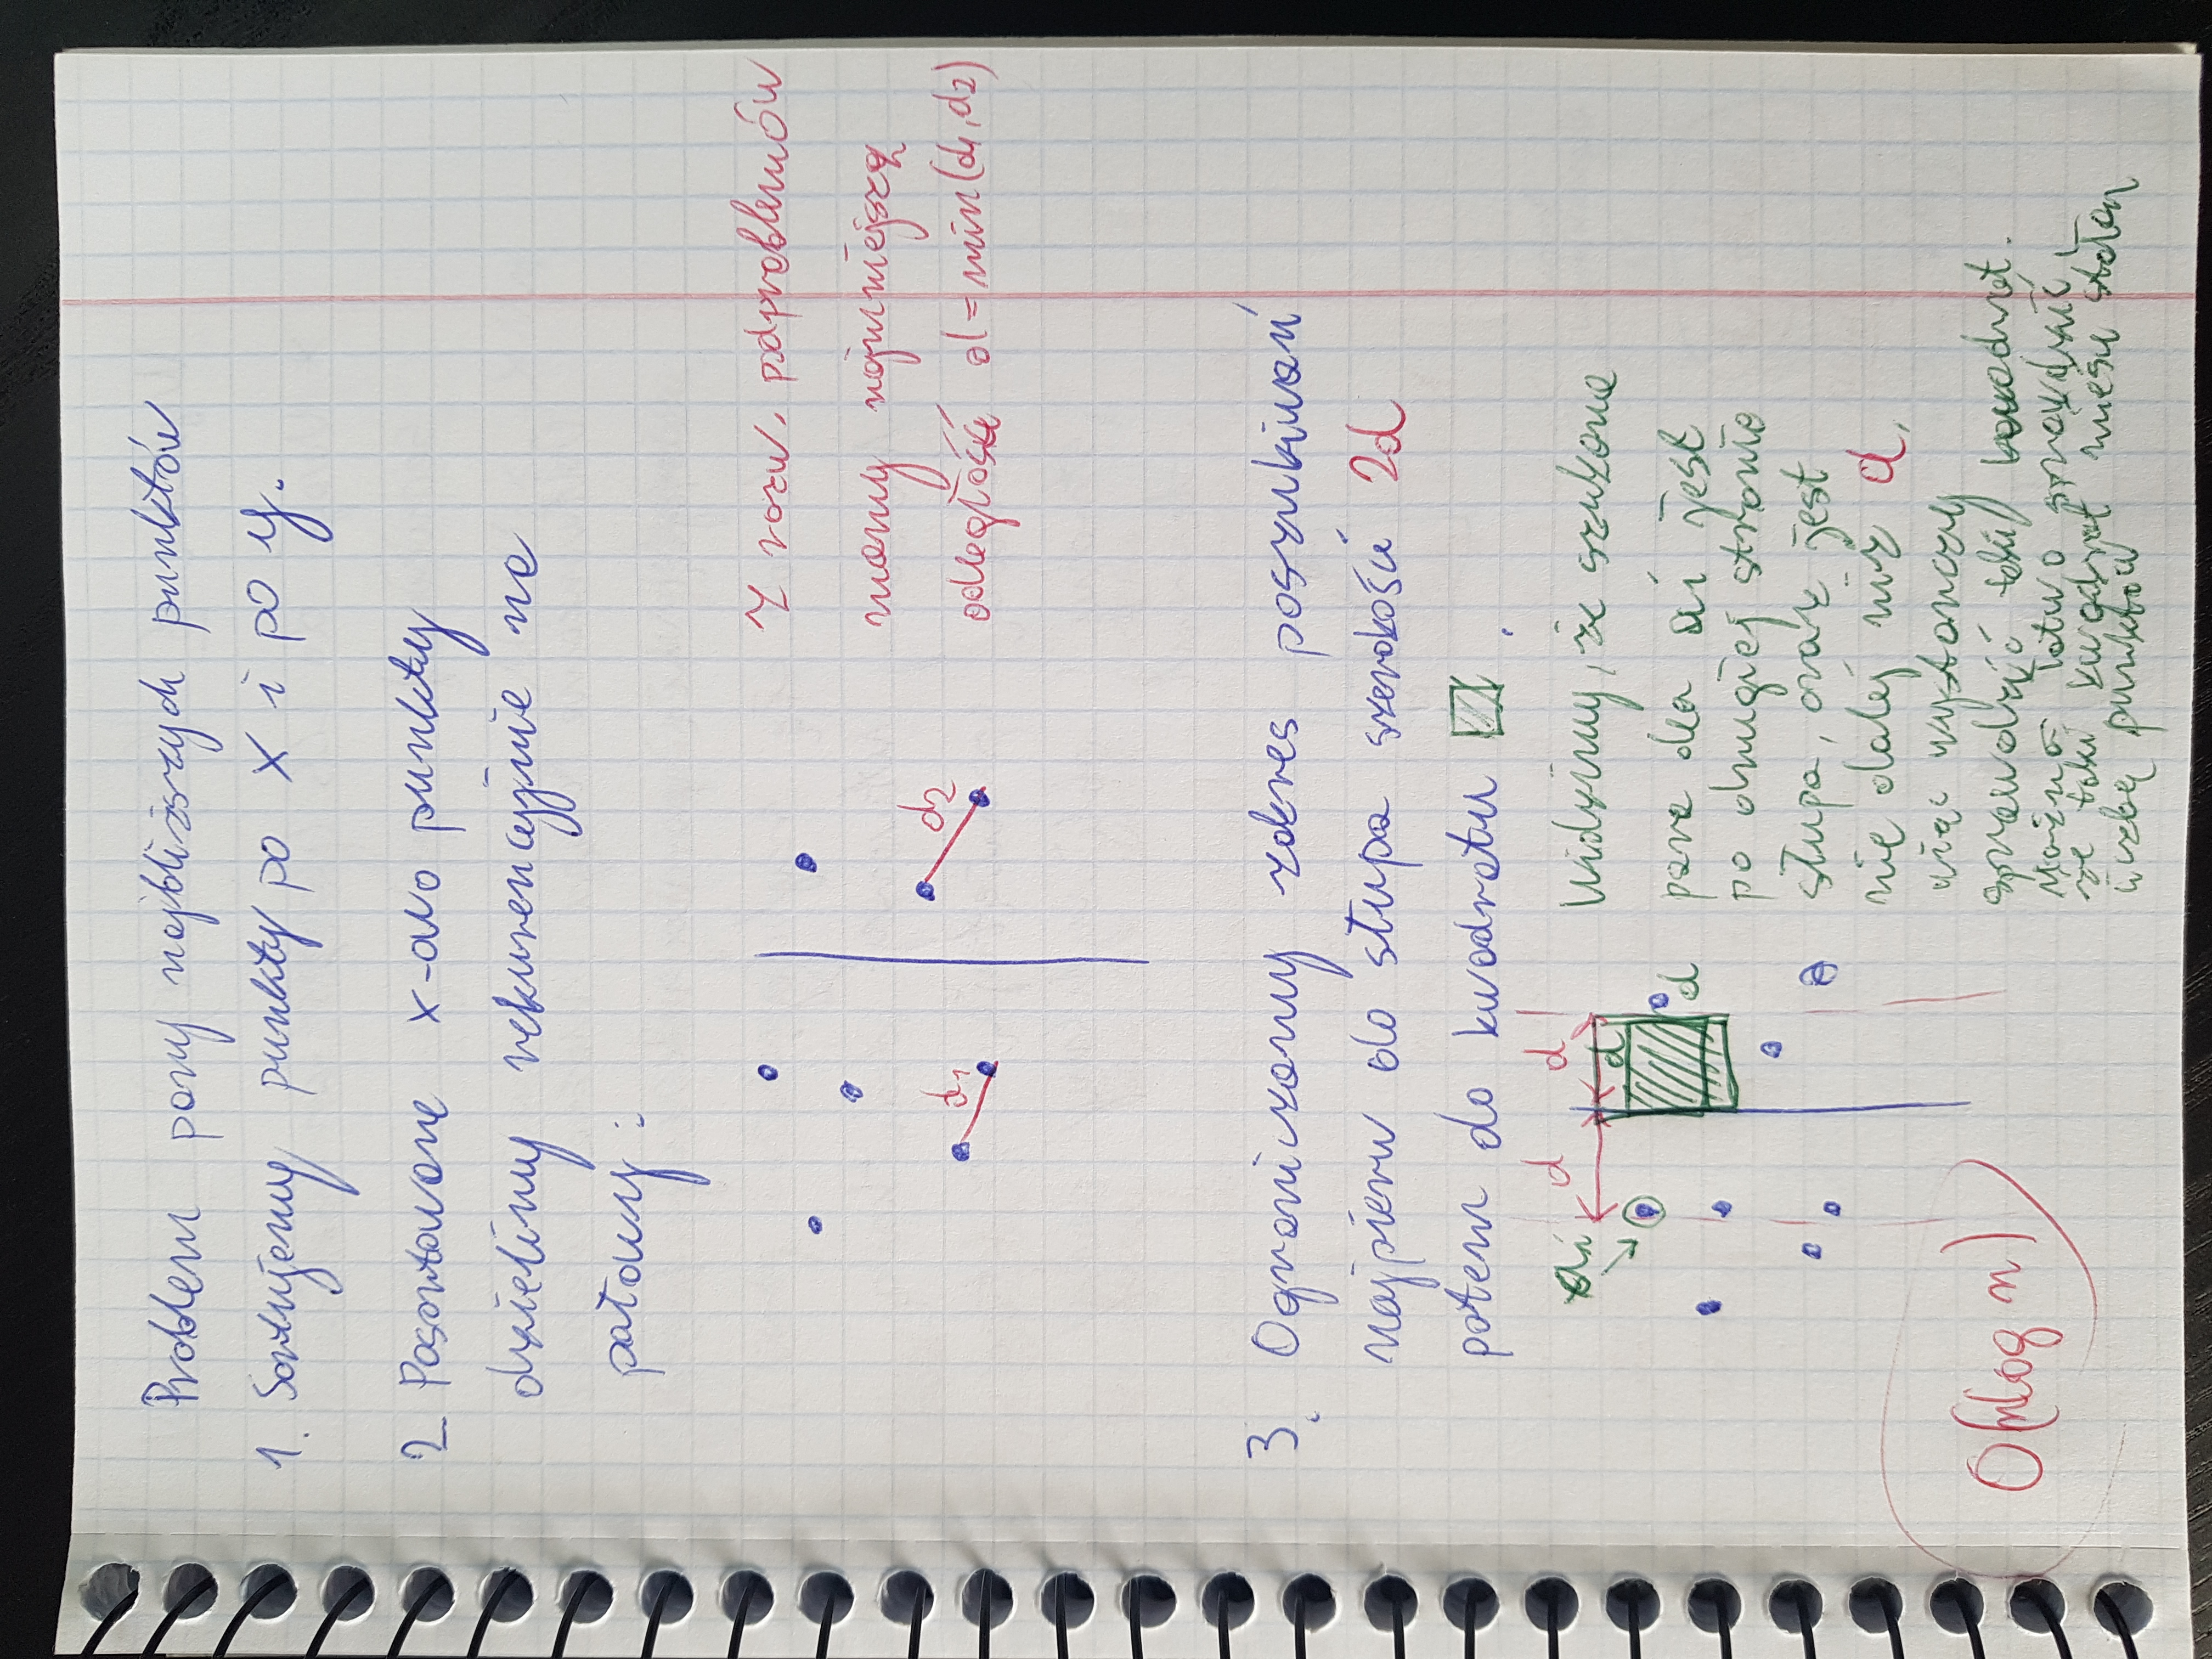 Problem pary najbliższych punktów
1. Sortujemy punkty po x i po y.
2. Posortowane x-owo punkty
dzielimy rekurencyjnie na
połowy:
Z rozw. podproblemów
mamy najmniejszą
odległość d=min(d1,d2)
d1
d2
3. Ograniczamy zakres poszukiwań
najpierw do słupa szerokości 2d
potem do kwadratu .
ai
d
d
d
d
Widzimy, że szukana
para dla ai jest
po drugiej stronie
słupa, oraz jest
nie dalej niż d,
więc wystarczy
sprawdzić taki kwadrat.
Można łatwo sprawdzić,
że taki kwadrat mieści stałą
liczbę punktów
O(nlog n)